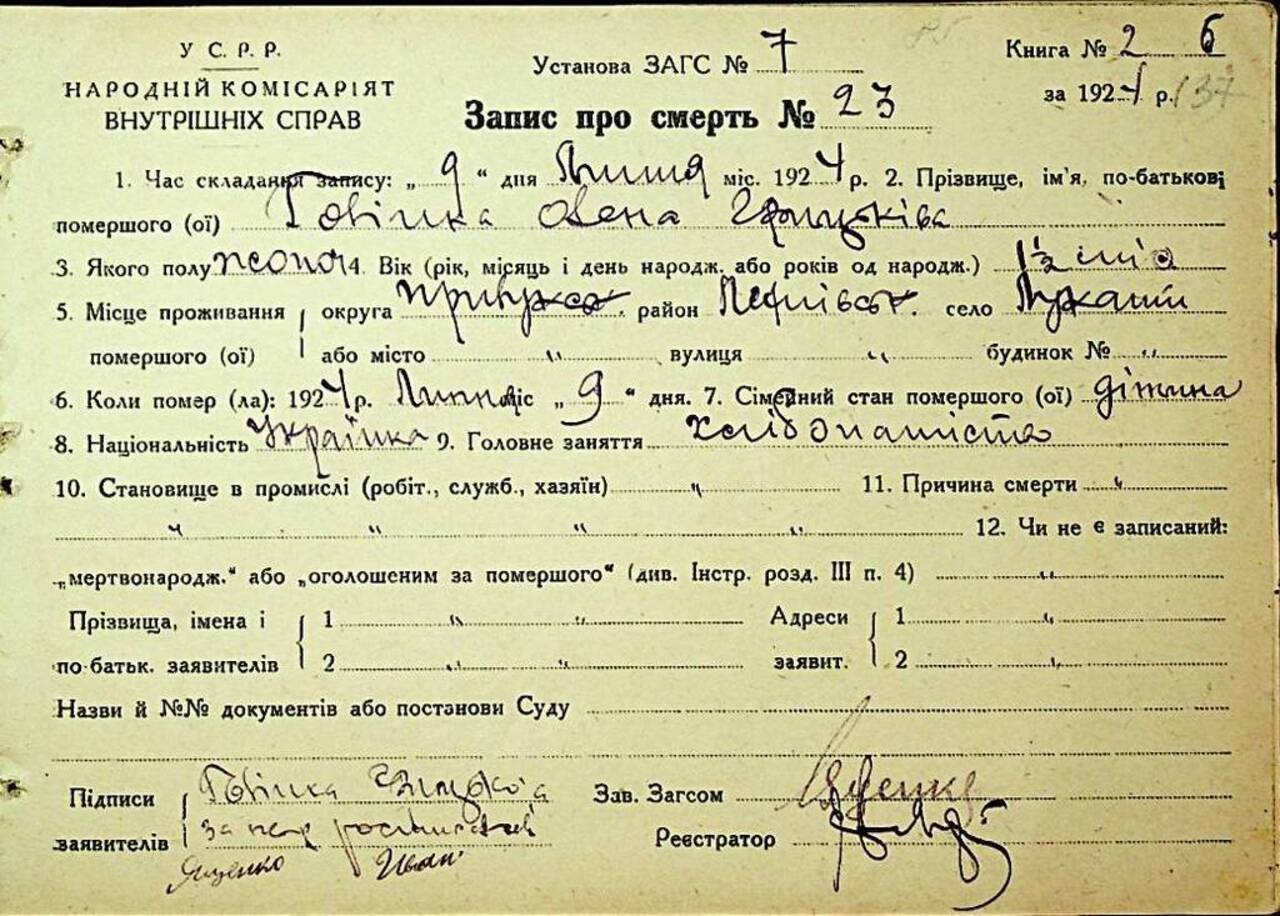 У С. Р. Р.
НАРОДНІЙ КОМІСАРІЯТ
ВНУТРІШНІХ СПРАВ
Установа ЗАГС № 7
Запис про смерть № 23
Книга № 2 б
за 1924 р. 137
1. Час складання запису: „ 9 “ дня Липня міс. 1924 р. 2. Прізвище, ім'я, по-батькові
помершого (ої) Олена Грицькова
3. Якого полу 4. Вік (рік, місяць і день народж. або років од народж.) 1½
5. Місце проживання округа район село
помершого (ої) або місто " вулиця " будинок № "
6. Коли помер (ла): 1924 р. Липня міс „ 9 “ дня. 7. Сімейний стан помершого (ої) дітина
8. Національність Українка 9. Головне заняття
10. Становище в промислі (робіт., служб., хазяїн) " 11. Причина смерти "
" " " " 12. Чи не є записаний:
„мертвонародж.“ або „оголошеним за помершого“ (див. Інстр. розд. III п. 4) "
Прізвища, імена і 1 " " Адреси 1 "
по батьк. заявителів 2 " " заявит. 2 "
Назви й №№ документів або постанови Суду
Підписи Зав. Загсом Яценко
заявителів Реєстратор
Яценко Иван